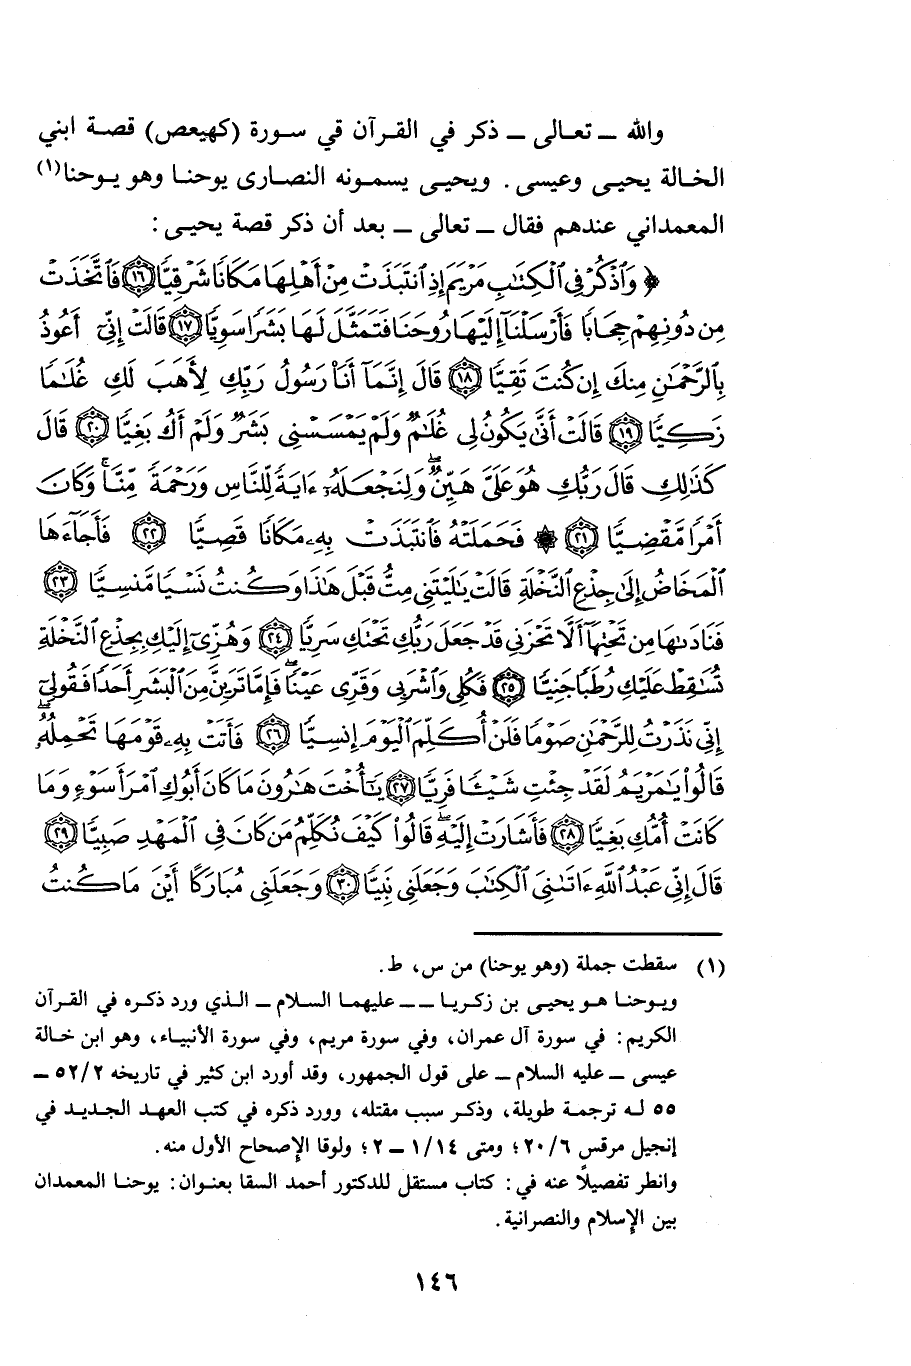 والله ــ تعـالى ــ ذكر في القـرآن قي سـورة (كهيعص) قصـة ابني
الخـالة يحيـى وعيسى. ويحيـى يسمـونه النصـارى يوحنـا وهو يـوحنا(١)
المعمداني عندهم فقال ــ تعالى ــ بعد أن ذكر قصة يحيـى:
﴿ وَٱذۡكُرۡ فِي ٱلۡكِتَٰبِ مَرۡيَمَ إِذِ ٱنتَبَذَتۡ مِنۡ أَهۡلِهَا مَكَانٗا شَرۡقِيّٗا ١٦ فَٱتَّخَذَتۡ
مِن دُونِهِمۡ حِجَابٗا فَأَرۡسَلۡنَآ إِلَيۡهَا رُوحَنَا فَتَمَثَّلَ لَهَا بَشَرٗا سَوِيّٗا ١٧ قَالَتۡ إِنِّيٓ أَعُوذُ
بِٱلرَّحۡمَٰنِ مِنكَ إِن كُنتَ تَقِيّٗا ١٨ قَالَ إِنَّمَآ أَنَا۠ رَسُولُ رَبِّكِ لِأَهَبَ لَكِ غُلَٰمٗا
زَكِيّٗا ١٩ قَالَتۡ أَنَّىٰ يَكُونُ لِي غُلَٰمٞ وَلَمۡ يَمۡسَسۡنِي بَشَرٞ وَلَمۡ أَكُ بَغِيّٗا ٢٠ قَالَ
كَذَٰلِكِ قَالَ رَبُّكِ هُوَ عَلَيَّ هَيِّنٞۖ وَلِنَجۡعَلَهُۥٓ ءَايَةٗ لِّلنَّاسِ وَرَحۡمَةٗ مِّنَّاۚ وَكَانَ
أَمۡرٗا مَّقۡضِيّٗا ٢١ ۞ فَحَمَلَتۡهُ فَٱنتَبَذَتۡ بِهِۦ مَكَانٗا قَصِيّٗا ٢٢ فَأَجَآءَهَا
ٱلۡمَخَاضُ إِلَىٰ جِذۡعِ ٱلنَّخۡلَةِ قَالَتۡ يَٰلَيۡتَنِي مِتُّ قَبۡلَ هَٰذَا وَكُنتُ نَسۡيٗا مَّنسِيّٗا ٢٣
فَنَادَىٰهَا مِن تَحۡتِهَآ أَلَّا تَحۡزَنِي قَدۡ جَعَلَ رَبُّكِ تَحۡتَكِ سَرِيّٗا ٢٤ وَهُزِّيٓ إِلَيۡكِ بِجِذۡعِ ٱلنَّخۡلَةِ
تُسَٰقِطۡ عَلَيۡكِ رُطَبٗا جَنِيّٗا ٢٥ فَكُلِي وَٱشۡرَبِي وَقَرِّي عَيۡنٗاۖ فَإِمَّا تَرَيِنَّ مِنَ ٱلۡبَشَرِ أَحَدٗا فَقُولِيٓ
إِنِّي نَذَرۡتُ لِلرَّحۡمَٰنِ صَوۡمٗا فَلَنۡ أُكَلِّمَ ٱلۡيَوۡمَ إِنسِيّٗا ٢٦ فَأَتَتۡ بِهِۦ قَوۡمَهَا تَحۡمِلُهُۥۖ
قَالُواْ يَٰمَرۡيَمُ لَقَدۡ جِئۡتِ شَيۡـٔٗا فَرِيّٗا ٢٧ يَٰٓأُخۡتَ هَٰرُونَ مَا كَانَ أَبُوكِ ٱمۡرَأَ سَوۡءٖ وَمَا
كَانَتۡ أُمُّكِ بَغِيّٗا ٢٨ فَأَشَارَتۡ إِلَيۡهِۖ قَالُواْ كَيۡفَ نُكَلِّمُ مَن كَانَ فِي ٱلۡمَهۡدِ صَبِيّٗا ٢٩
قَالَ إِنِّي عَبۡدُ ٱللَّهِ ءَاتَىٰنِيَ ٱلۡكِتَٰبَ وَجَعَلَنِي نَبِيّٗا ٣٠ وَجَعَلَنِي مُبَارَكًا أَيۡنَ مَا كُنتُ
(١) سقطت جملة (وهو يوحنا) من س، ط.
ويـوحنـا هـو يحيـى بن زكـريـا ــ ــ عليهمـا السـلام ــ الـذي ورد ذكـره في القـرآن
الكريم: في سورة آل عمران، وفي سورة مريم، وفي سورة الأنبيـاء، وهو ابن خـالة
عيسى ــ عليه السلام ــ على قول الجمهور، وقد أورد ابن كثير في تاريخه ٥٢/٢ ــ
٥٥ لـه ترجمـة طويلة، وذكـر سبب مقتله، وورد ذكره في كتب العهـد الجـديـد في
إنجيل مرقس ٢٠/٦؛ ومتى ١/١٤ ــ ٢؛ ولوقا الإصحاح الأول منه.
وانظر تفصيلاً عنه في: كتاب مستقل للدكتور أحمد السقا بعنـوان: يوحنـا المعمدان
بين الإسلام والنصرانية.
١٤٦